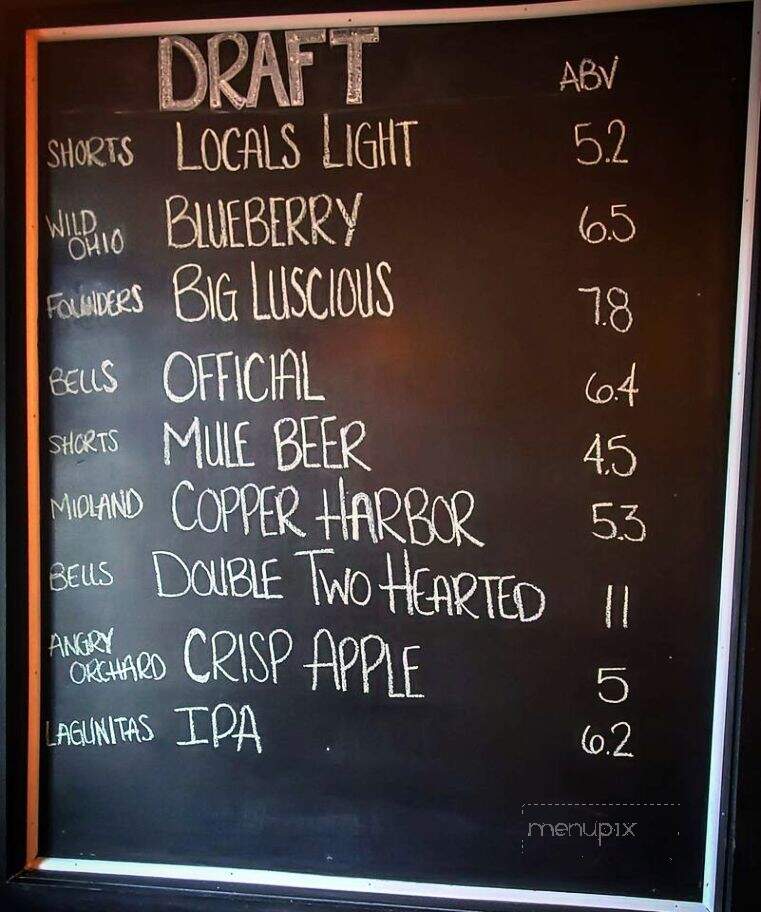 DRAFT ABV
SHORTS LOCALS LIGHT 5.2
WILD OHIO BLUEBERRY 6.5
FOUNDERS BIG LUSCIOUS 7.8
BELLS OFFICIAL 6.4
SHORTS MULE BEER 4.5
MIDLAND COPPER HARBOR 5.3
BELLS DOUBLE TWO HEARTED 11
ANGRY ORCHARD CRISP APPLE 5
LAGUNITAS IPA 6.2
menupix